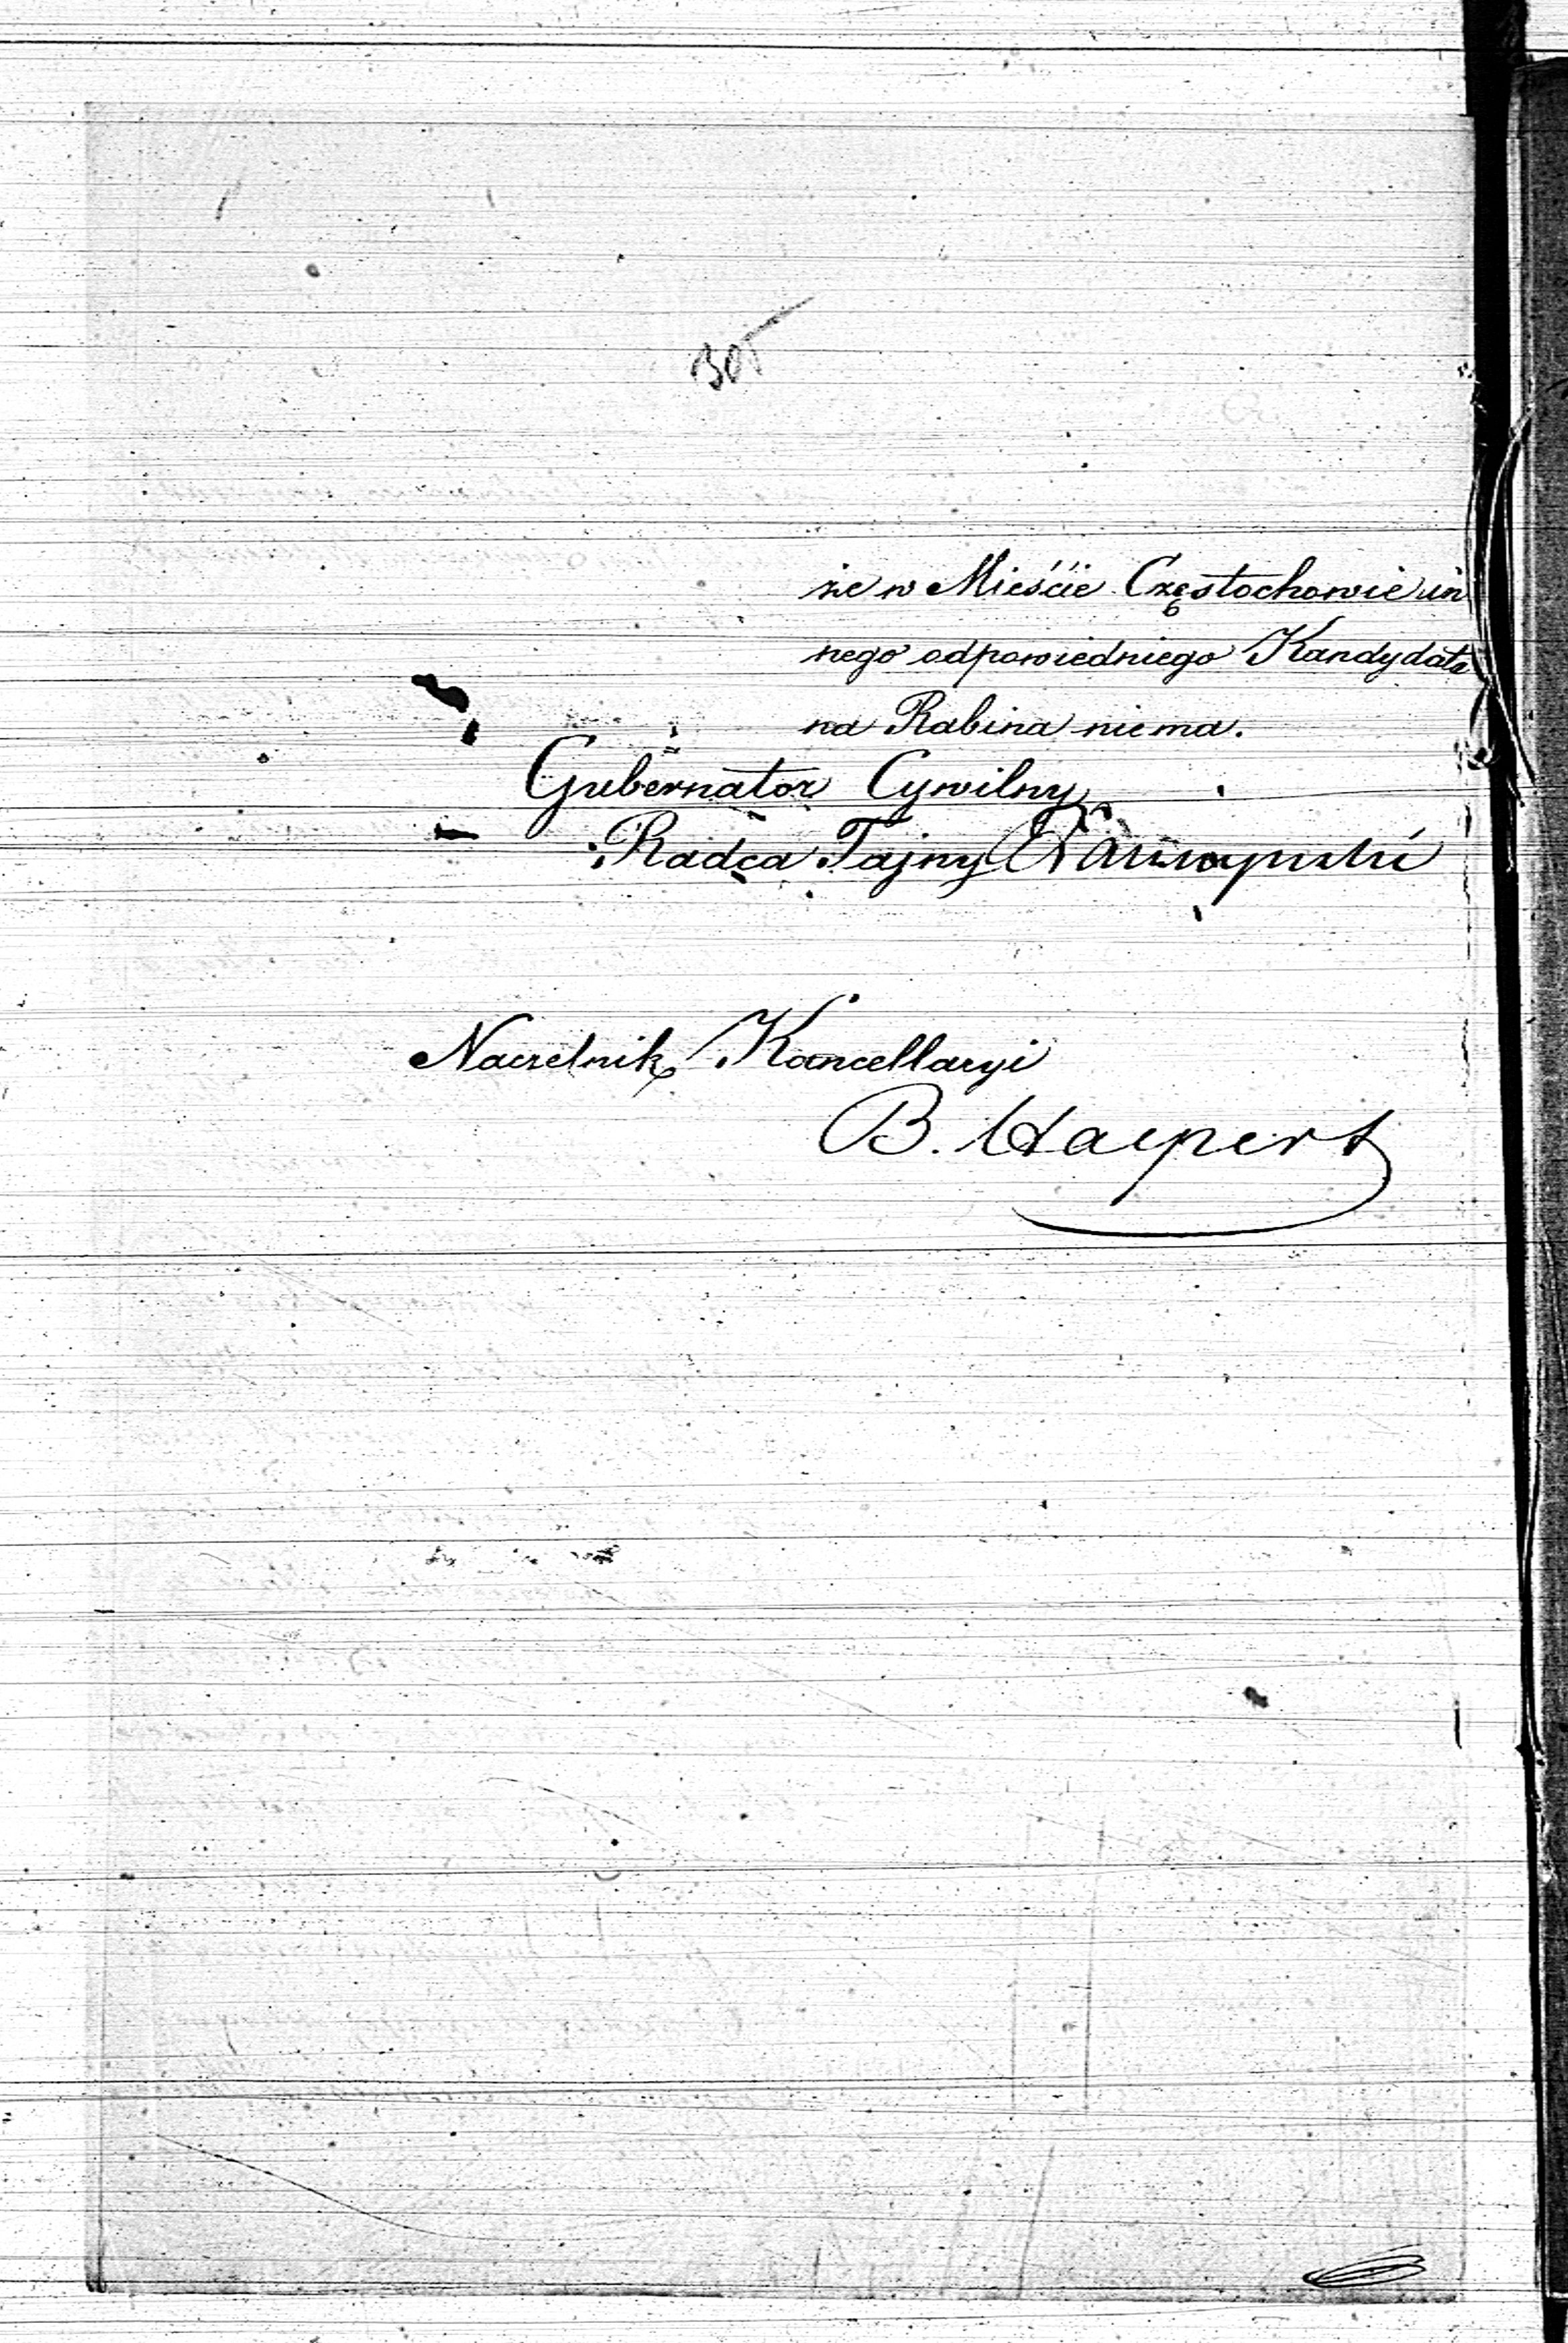 305
że w Mieście Częstochowie in
nego odpowiedniego Kandydata
na Rabina niema.
Gubernator Cywilny
Radca Tajny
Naczelnik Kancellaryi
B. Halpert